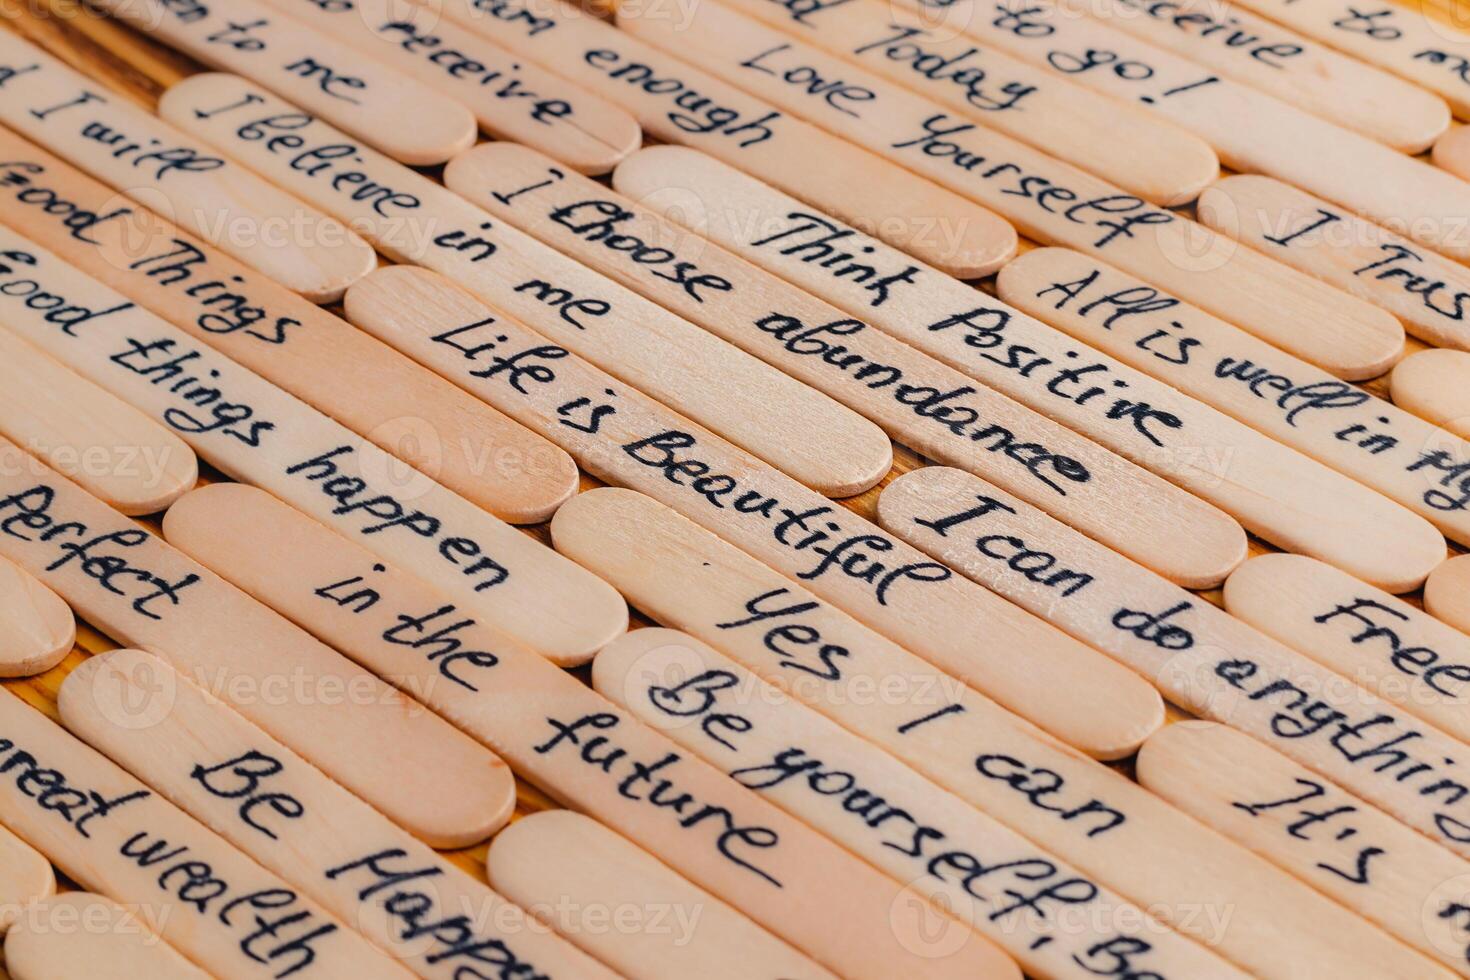 to me
to receive
enough
Today
to go!
receive
to me
Love Yourself
I will
I believe in me
I Choose abundance
Think Positive
All is well in My
I Trus
Good Things
Good things happen
Life is Beautiful
I can do anything
Free
Perfect
in the future
Yes I can
It's
Be yourself, Be
great wealth
Be Happy
Vecteezy